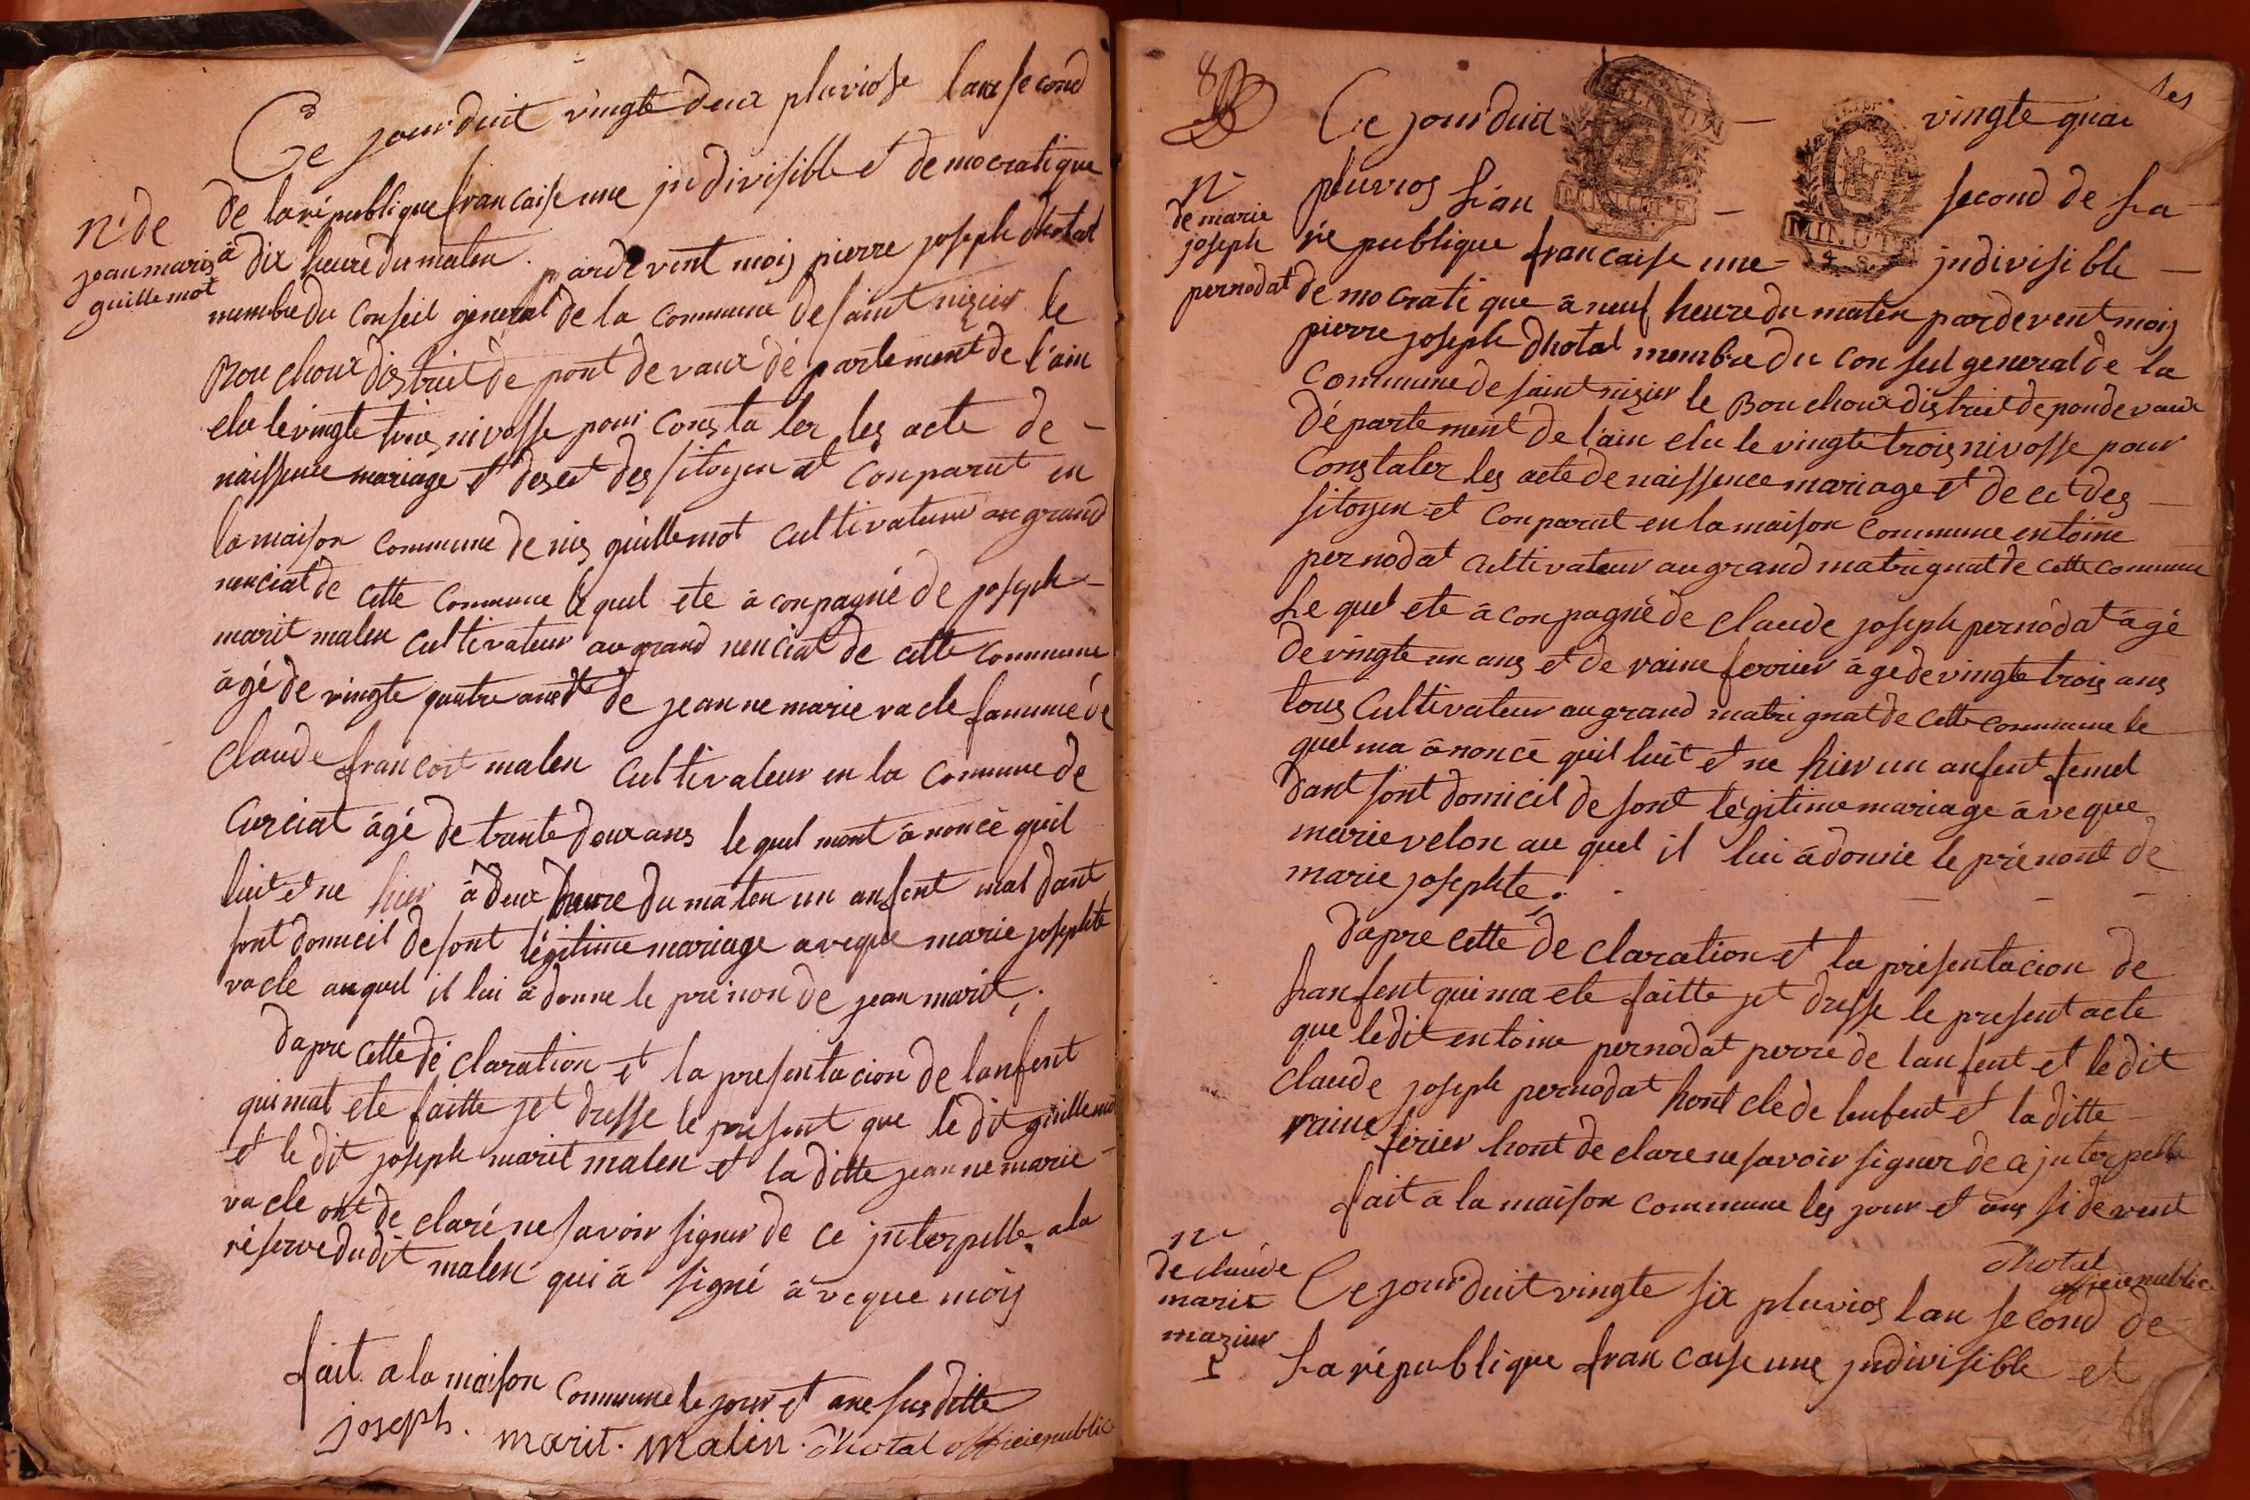 Ce jourduit vingte deux pluviose lan second
de la république francaise une jndivisible et democratique
n. de
jean marie
guillemot
à dix heure du maten. pardevent mois pierre joseph dhotal
membre du conseil general de la commune de saint nizier le
Bouchoux district de pont de vaux dé partement de l'ain
elu le vingte trois nivosse pour consta ler les acte de -
naissence mariage et deset des sitoyen et conparut en
la maison commune denis guillemot cultivateur au grand
nenciat de cette commune le quel ete à conpagné de joseph -
marit malen cultivateur au grand nenciat de cette commune
âgé de vingte quatre ans et de jeanne marie vacle famme de
claude francois malen cultivateur en la commune de
Curciat âgé de trante deux ans le quel mont â noncé quil
luit et ne hier â deux heure du maten un anfent mal dant
sont domicil de sont légitime mariage aveque marie josephte
vacle auquel il lui à donne le prénon de jean marit.
dapre cette dé claration et la presentacion de lanfent
qui mat ete faitte jet dresse le present que le dit guillemot
et le dit joseph marit malen et la ditte jeanne marie -
vacle ont de claré ne savoir signer de ce jnterpelle a la
réserve du dit malen qui à signé àveque mois
fait a la maison commune le jour et ane susditte
joseph. marit. malin. Dhotal officiepublic
8
Ce jourduit — vingte quat
pluvios l'an — second de la
MINUTE
MINUTE
4. S.
n
de marie
joseph
pernodat
ré publique francaise une - jndivisible —
democrati que â neuf heure du maten pardevent mois
pierre joseph dhotal membre du conseil general de la
commune de saint nizier le Bouchoux district de pondevaux
département de l'ain elu le vingte trois nivosse pour
constater les acte de naissence mariage et de cet des —
sitoyen et conparut en la maison commune entoine
pernodat cultivateur au grand matrignat de cette commune
le quel ete à conpagné de claude joseph pernodat âgé
de vingte un ans et de raine ferrier âge de vingte trois ans
tous cultivateur au grand matrignat de cette commune le
quel ma ânoncé quil luit et ne hier un anfent femel
dant sont domicil de sont légitime mariage àveque
marie velon au quel il lui à donné le prénont de
marie josephte.
dapre cette de claration et la présentacion de
lanfent qui ma ete faitte jet dresse le present acte
que ledit entoine pernodat perre de lanfent et ledit
claude joseph pernodat hont cle de lenfent et la ditte
raine ferier hont de clare ne savoir signer de ce jnterpelle
fait à la maison commune les jour et ans si devent
Dhotal
officiepublic
n
de claude
marit
mazuir
Ce jourduit vingte six pluvios lan second de
la république francaise une jndivisible et